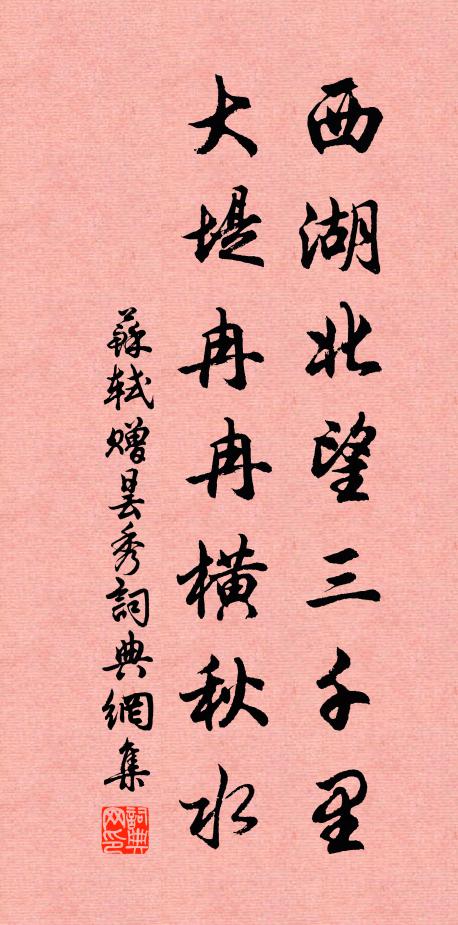 西湖北望三千里
大堤冉冉橫秋水
蘇軾贈曇秀詞典網集
詞典网印